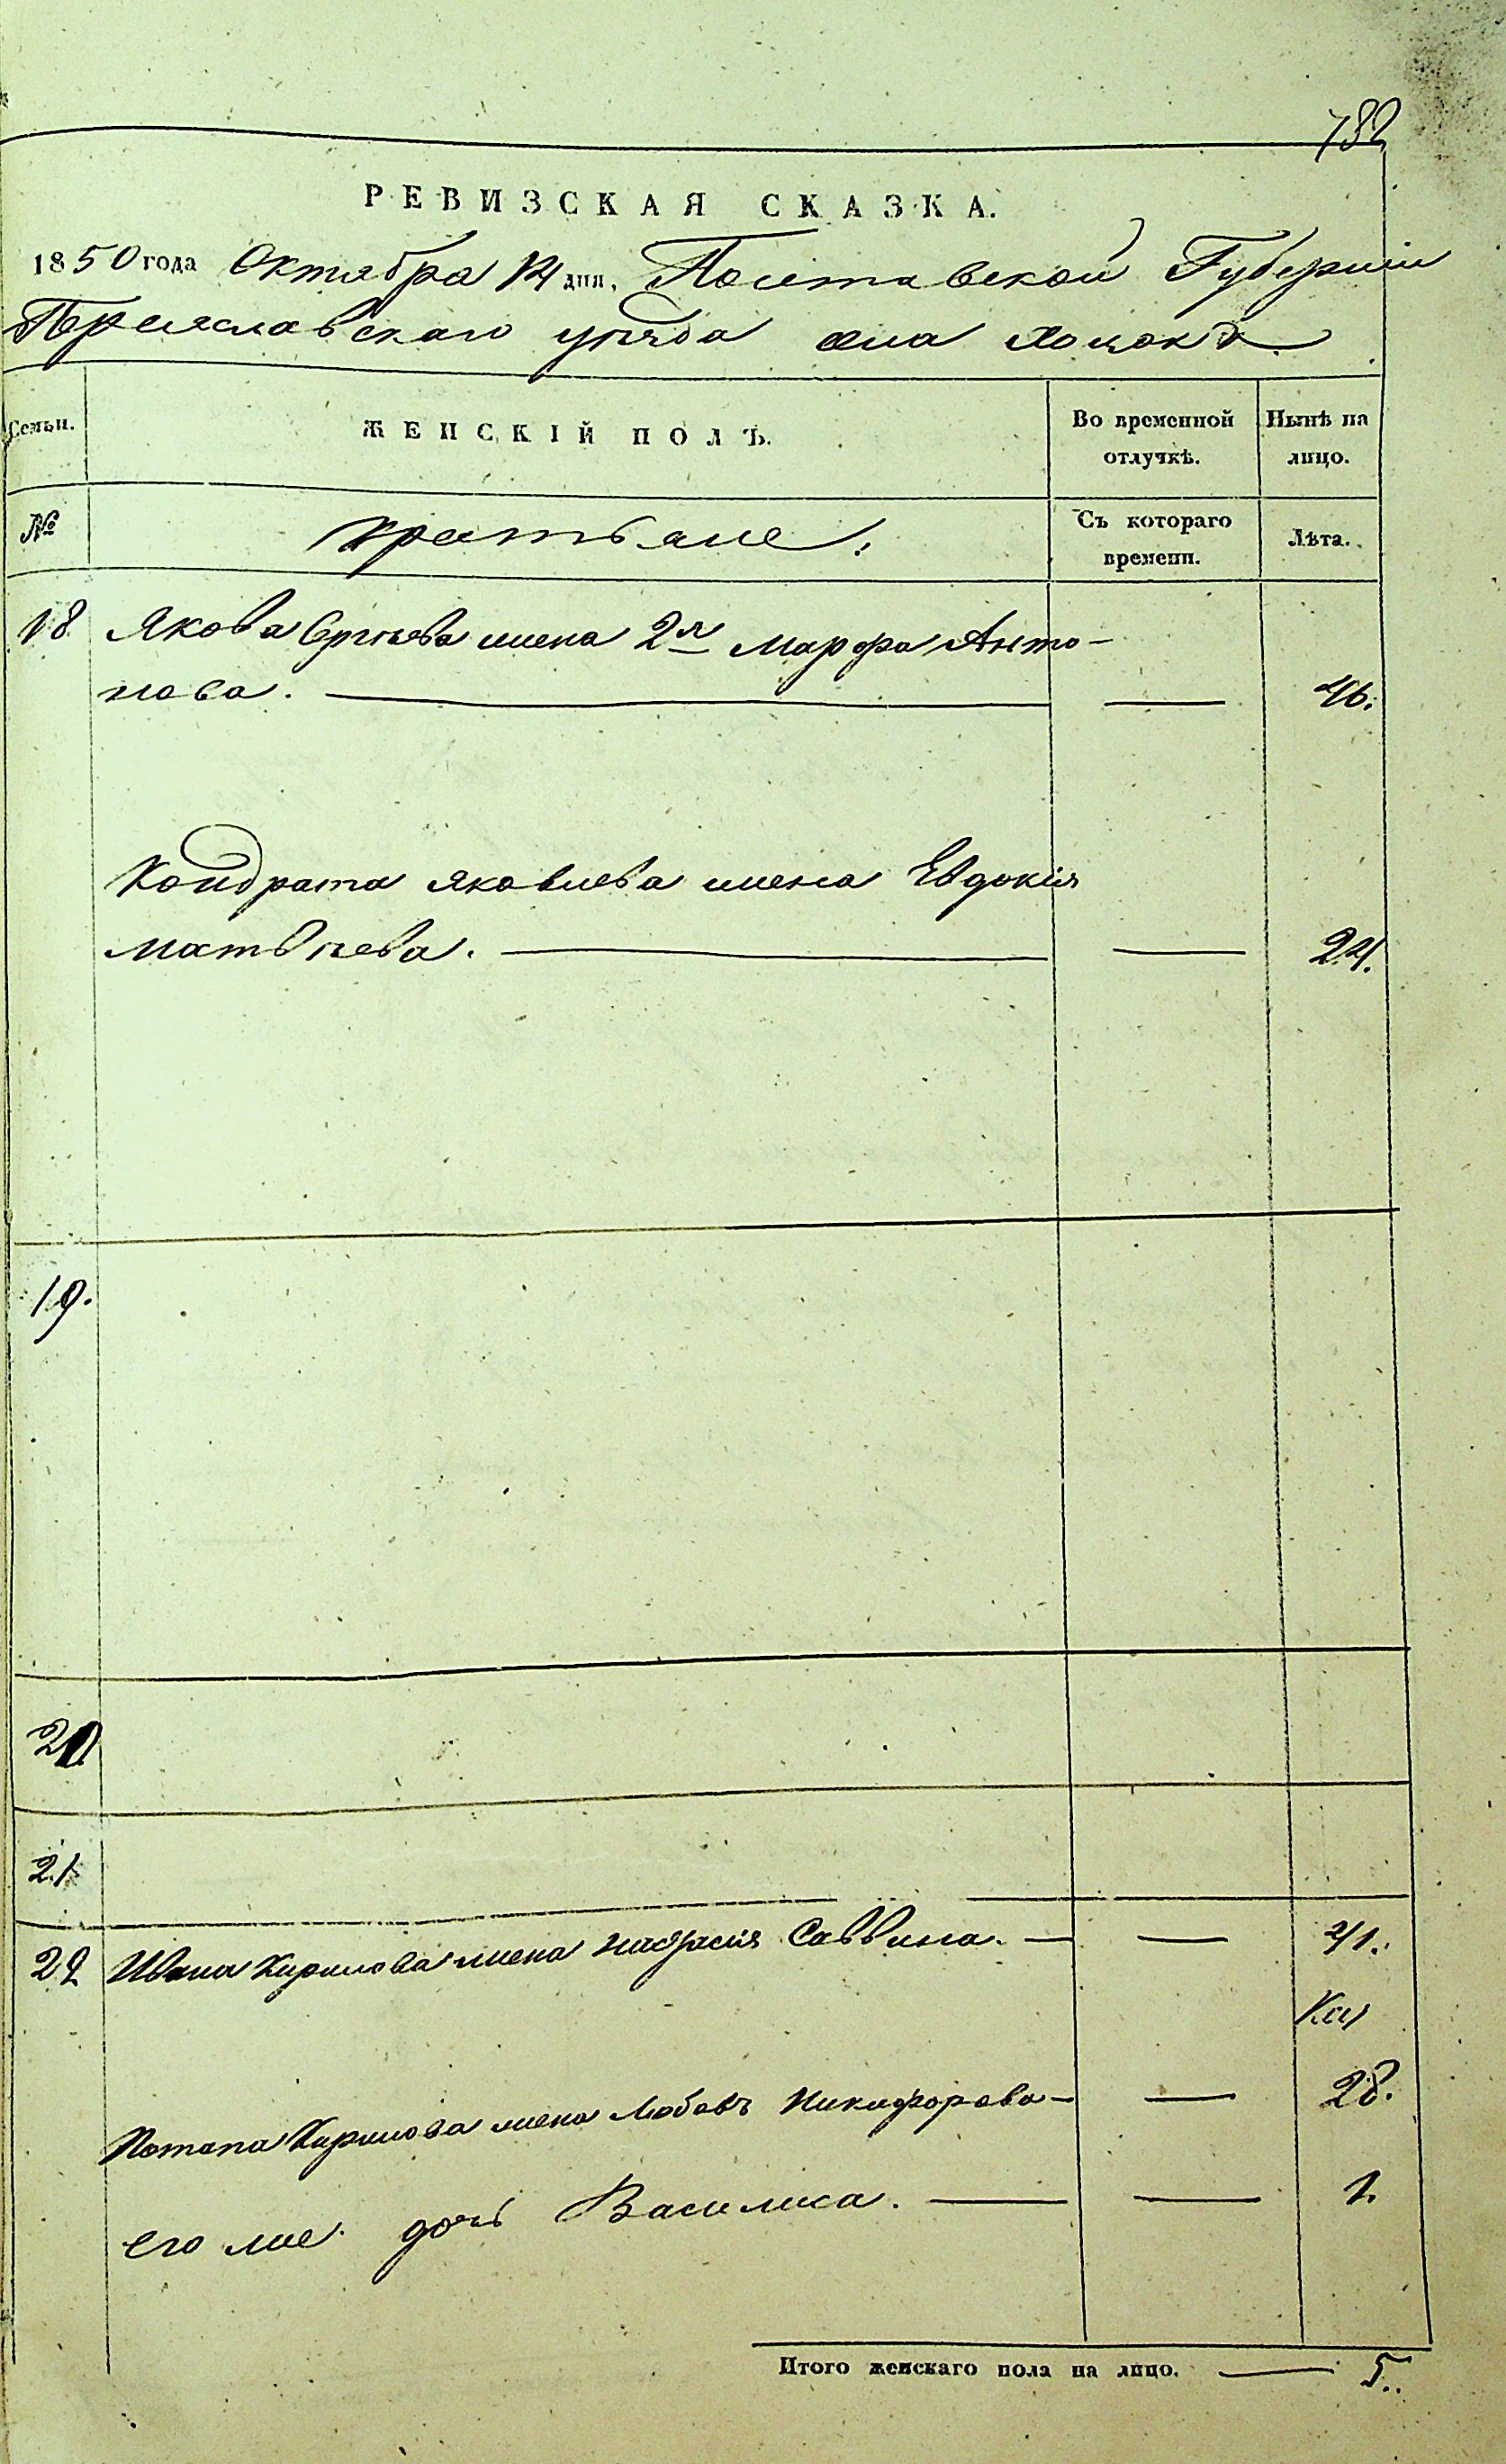 782
РЕВИЗСКАЯ СКАЗКА.
1850 года Октября 14 дня, Полтавской Губерніи
Переяславскаго уѣзда села Хоцокъ
Семьи. ЖЕНСКІЙ ПОЛЪ. Во временной отлучкѣ. Нынѣ на лицо.
№ крестьяне. Съ котораго времени. Лѣта.
18 Якова Сергѣева жена 2я Марфа Анто-
нова. — — 46.
Кондрата Яковлева жена Евдокія
Матвѣева. — — 24.
19.
20
21
22 Ивана Кирилова жена Настасія Саввина. — — 41.
Потапа Кирилова жена Любовъ Никифорова — — 28.
его же дочь Василиса. — — 1.
Итого женскаго пола на лицо. — 5.